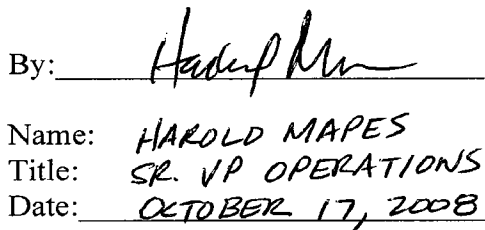 By: Harold M
Name: HAROLD MAPES
Title: SR. VP OPERATIONS
Date: OCTOBER 17, 2008